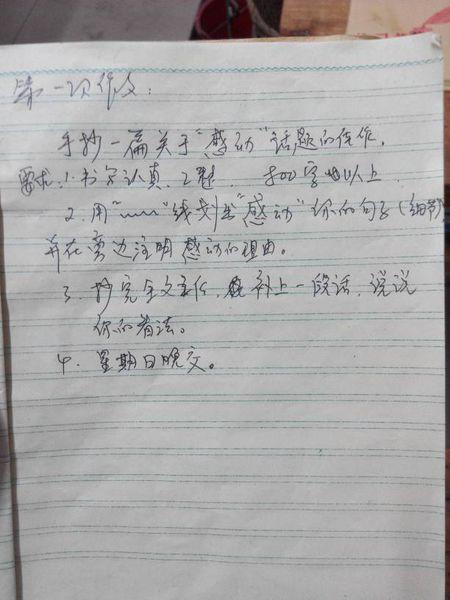 第一次作文:
手抄一篇关于"感动"话题的佳作,
要求:1.书写认真、工整. 800字以上.
2.用"﹏﹏"线划出"感动"你的句子(细节)
并在旁边注明感动的理由。
3.抄完全文后,补上一段话,说说
你的看法。
4.星期日晚交。